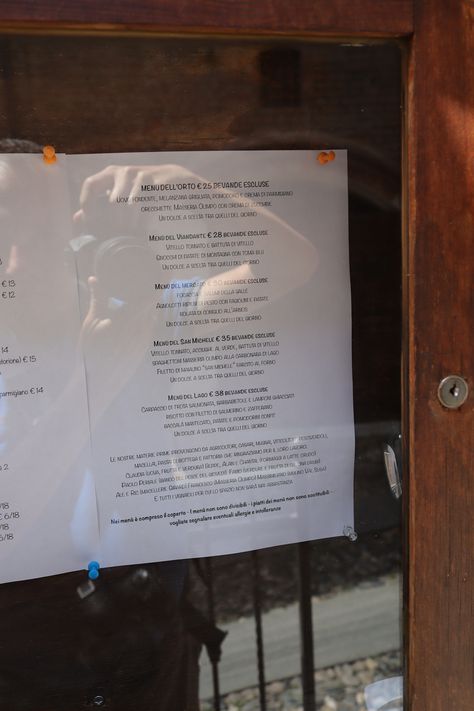 € 13
€ 12
14
€ 15
€ 14
2
/18
€ 6/18
/18
/18
MENU DELL'ORTO € 25 BEVANDE ESCLUSE
UOVO FONDENTE, MELANZANA GRIGLIATA, POMODORO E CREMA DI PARMIGIANO
ORECCHIETTE MASSERIA OLIMPO CON CREMA DI
UN DOLCE A SCELTA TRA QUELLI DEL GIORNO
MENÙ DEL VIANDANTE € 28 BEVANDE ESCLUSE
VITELLO TONNATO E BATTUTA DI VITELLO
GNOCCHI DI PATATE DI MONTAGNA CON TOMA BLU
UN DOLCE A SCELTA TRA QUELLI DEL GIORNO
MENÙ DEL MERCATO € 30 BEVANDE ESCLUSE
FOCACCIA E SALUMI DELLA VALLE
AGNOLOTTI RIPIENI DI PESTO CON FAGIOLINI E PATATE
ROLATA DI CONIGLIO ALL'ARNEIS
UN DOLCE A SCELTA TRA QUELLI DEL GIORNO
MENÙ DEL SAN MICHELE € 35 BEVANDE ESCLUSE
VITELLO TONNATO, ACCIUGHE AL VERDE, BATTUTA DI VITELLO
SPAGHETTONI MASSERIA OLIMPO ALLA CARBONARA DI LAGO
FILETTO DI MAIALINO "SAN MICHELE" ARROSTO AL FORNO
UN DOLCE A SCELTA TRA QUELLI DEL GIORNO
MENÙ DEL LAGO € 38 BEVANDE ESCLUSE
CARPACCIO DI TROTA SALMONATA, BARBABIETOLE E LAMPONI GHIACCIATI
RISOTTO CON FILETTO DI SALMERINO E ZAFFERANO
BACCALÀ MANTECATO, PATATE E POMODORINI CONFIT
UN DOLCE A SCELTA TRA QUELLI DEL GIORNO
LE NOSTRE MATERIE PRIME PROVENGONO DA AGRICOLTORI, CASARI, MUGNAI, VITICOLTORI, PESCIVENDOLI,
MACELLAI, PASTAI DI BOTTEGA E VETTORI CHE RINGRAZIAMO PER IL LORO LAVORO:
CLAUDIA (UOVA, FRUTTA E VERDURA)
PAOLO
ALE E RIC (MACELLERIE GIRARDI) FRANCESCO (MASSERIA OLIMPO) MASSIMILIANO (MULINO VAL SUSA)
E TUTTI I VIGNAIOLI PER CUI LO SPAZIO NON SARÀ MAI ABBASTANZA
Nei menù è compreso il coperto - I menù non sono divisibili - i piatti dei menù non sono sostituibili -
vogliate segnalare eventuali allergie e intolleranze